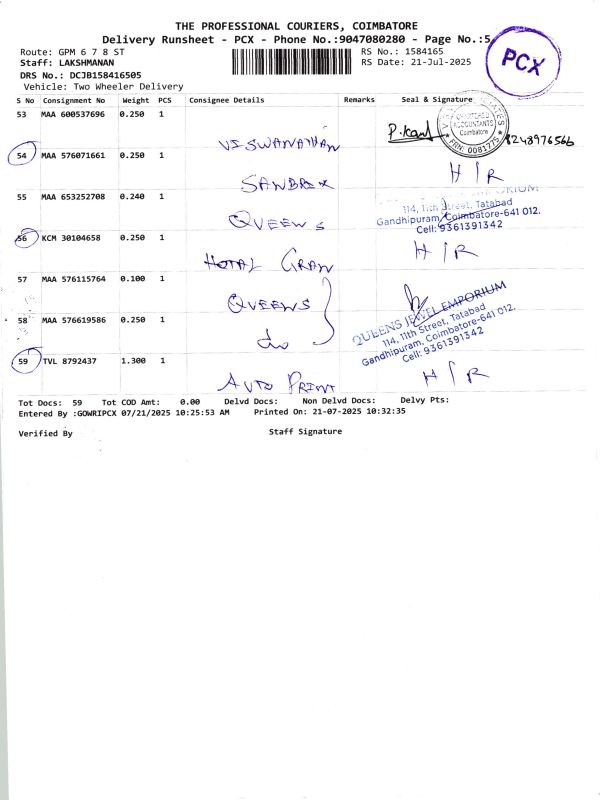 THE PROFESSIONAL COURIERS, COIMBATORE
Delivery Runsheet - PCX - Phone No.:9047080280 - Page No.:5
PCX
Route: GPM 6 7 8 ST RS No.: 1584165
Staff: LAKSHMANAN RS Date: 21-Jul-2025
DRS No.: DCJB158416505
Vehicle: Two Wheeler Delivery
S No Consignment No Weight PCS Consignee Details Remarks Seal & Signature
53 MAA 600537696 0.250 1 VISWANATHAN P. 8248976566
CHARTERED ACCOUNTANTS Coimbatore FRN: 008177S
54 MAA 576071661 0.250 1 SANDRIX H/R
55 MAA 653252708 0.240 1 QUEENS
114, 11th Street, Tatabad
Gandhipuram, Coimbatore-641 012.
Cell: 9361391342
56 KCM 30104658 0.250 1 HOTAL GRAN H/R
57 MAA 576115764 0.100 1 QUEENS
58 MAA 576619586 0.250 1 do
QUEENS JEWEL EMPORIUM
114, 11th Street, Tatabad
Gandhipuram, Coimbatore-641 012.
Cell: 9361391342
59 TVL 8792437 1.300 1 AUTO PRINT H/R
Tot Docs: 59 Tot COD Amt: 0.00 Delvd Docs: Non Delvd Docs: Delvy Pts:
Entered By :GOWRIPCX 07/21/2025 10:25:53 AM Printed On: 21-07-2025 10:32:35
Verified By Staff Signature